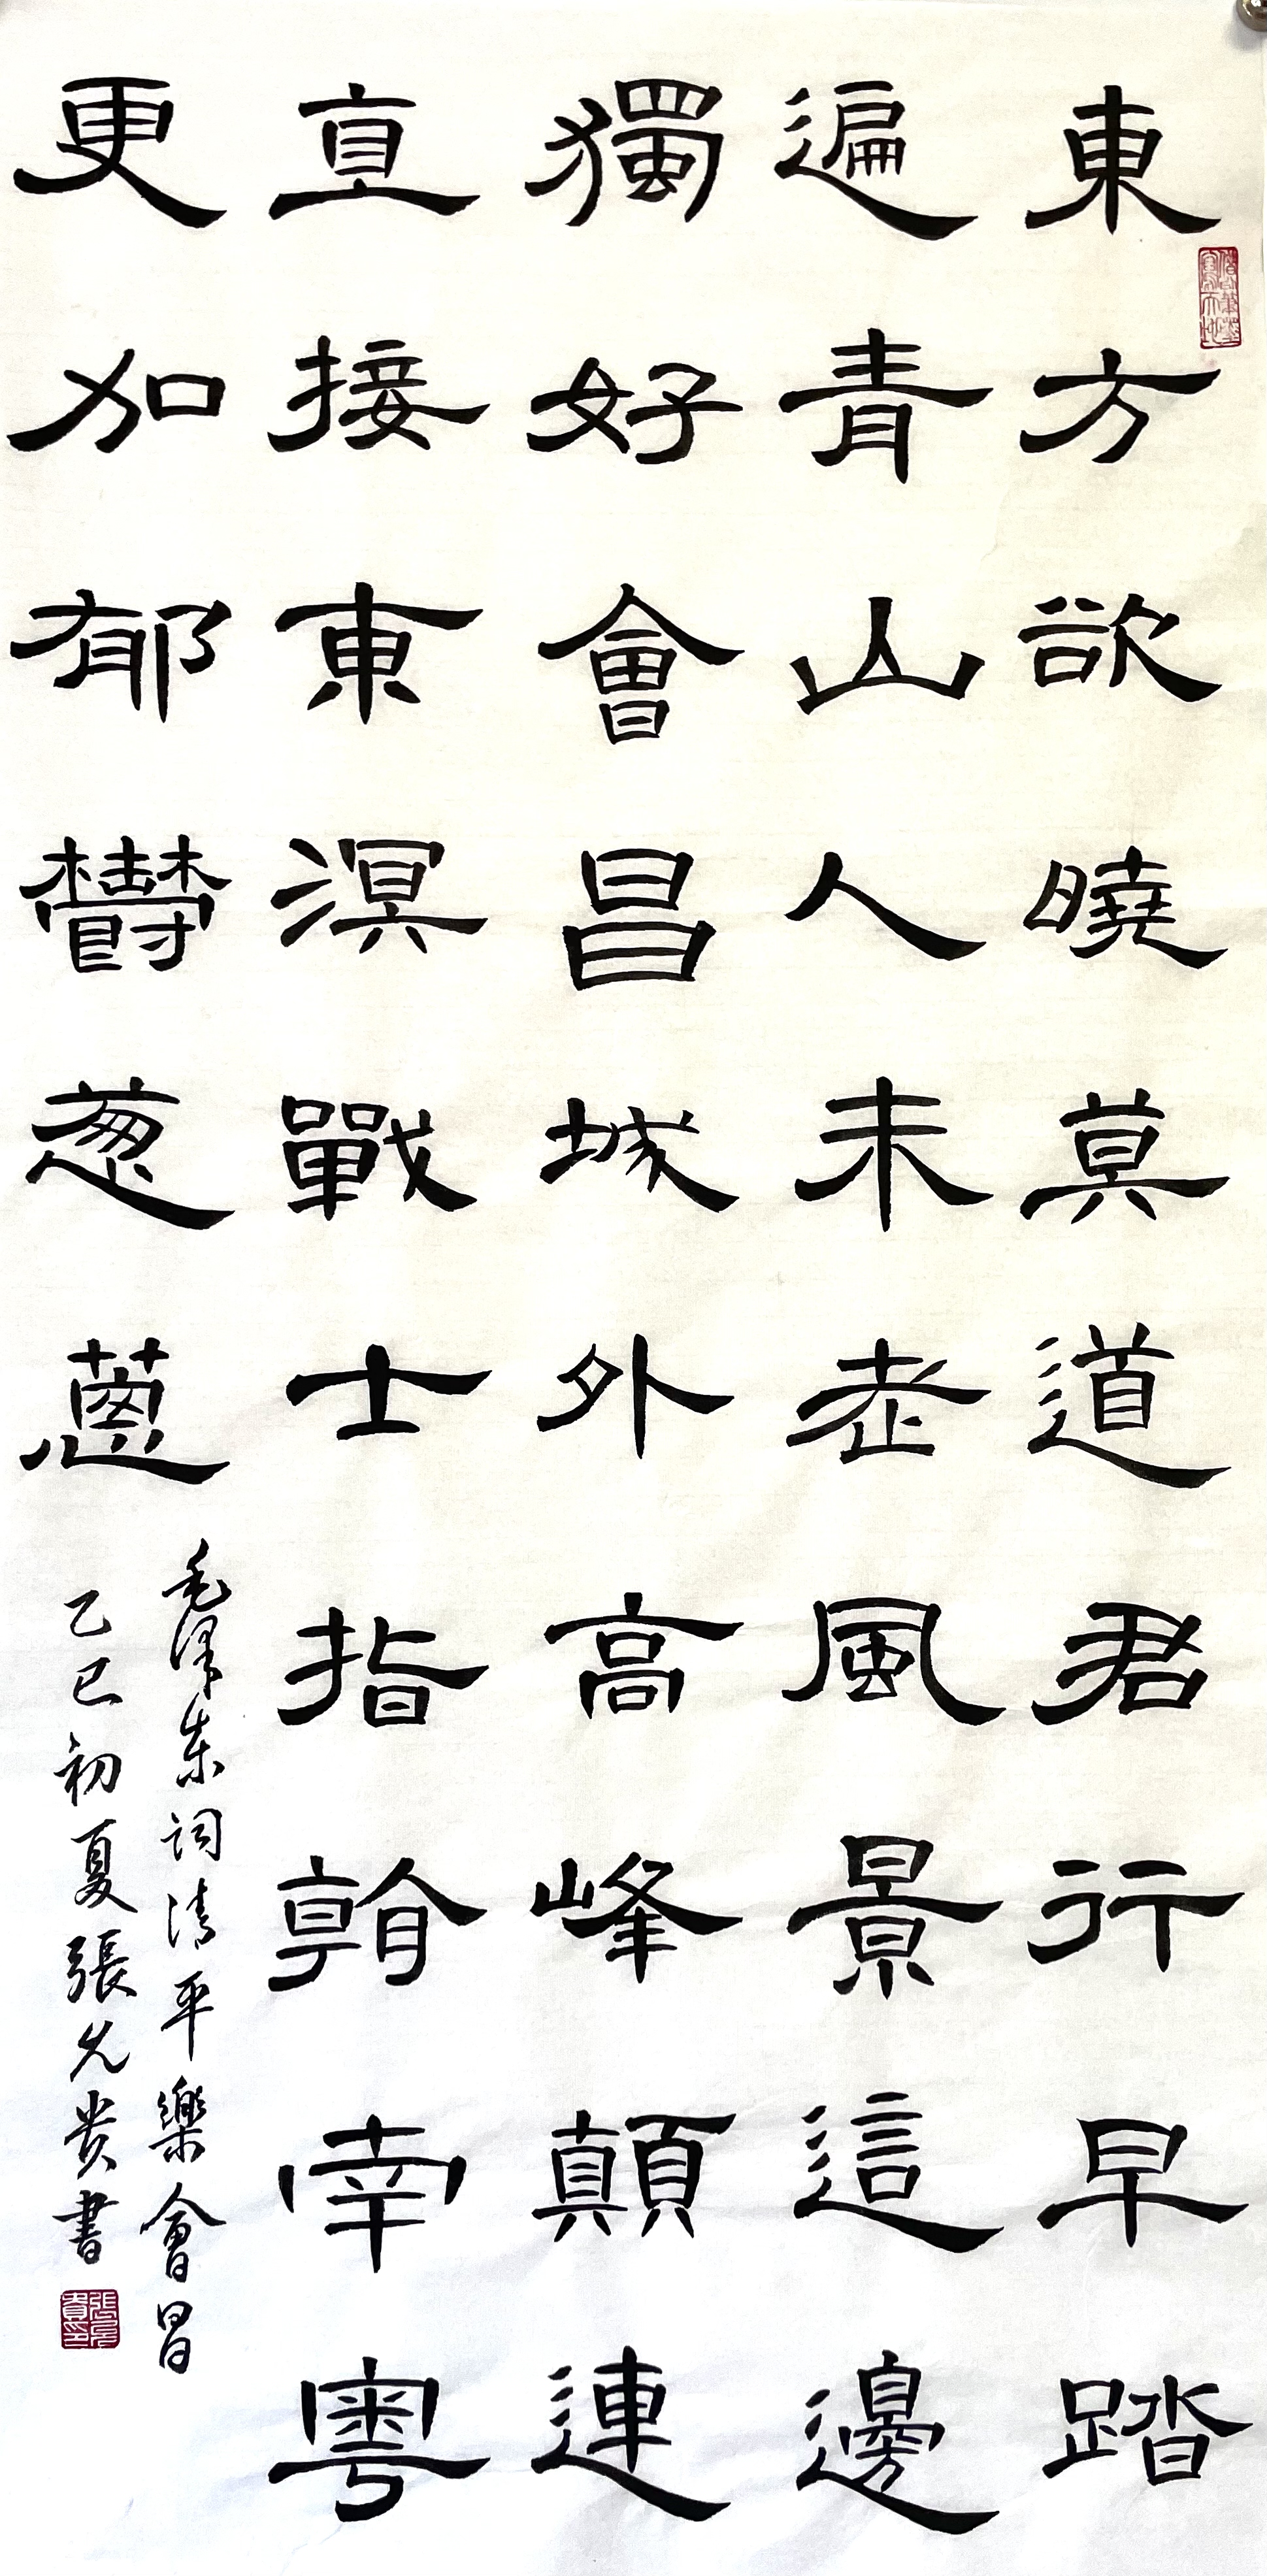 東方欲曉莫道君行早踏
遍青山人未老風景這邊
獨好會昌城外高峰顛連
直接東溟戰士指看南粵
更加郁鬱葱蔥
毛澤东詞清平樂會昌
乙巳初夏張允貴書
張允貴印